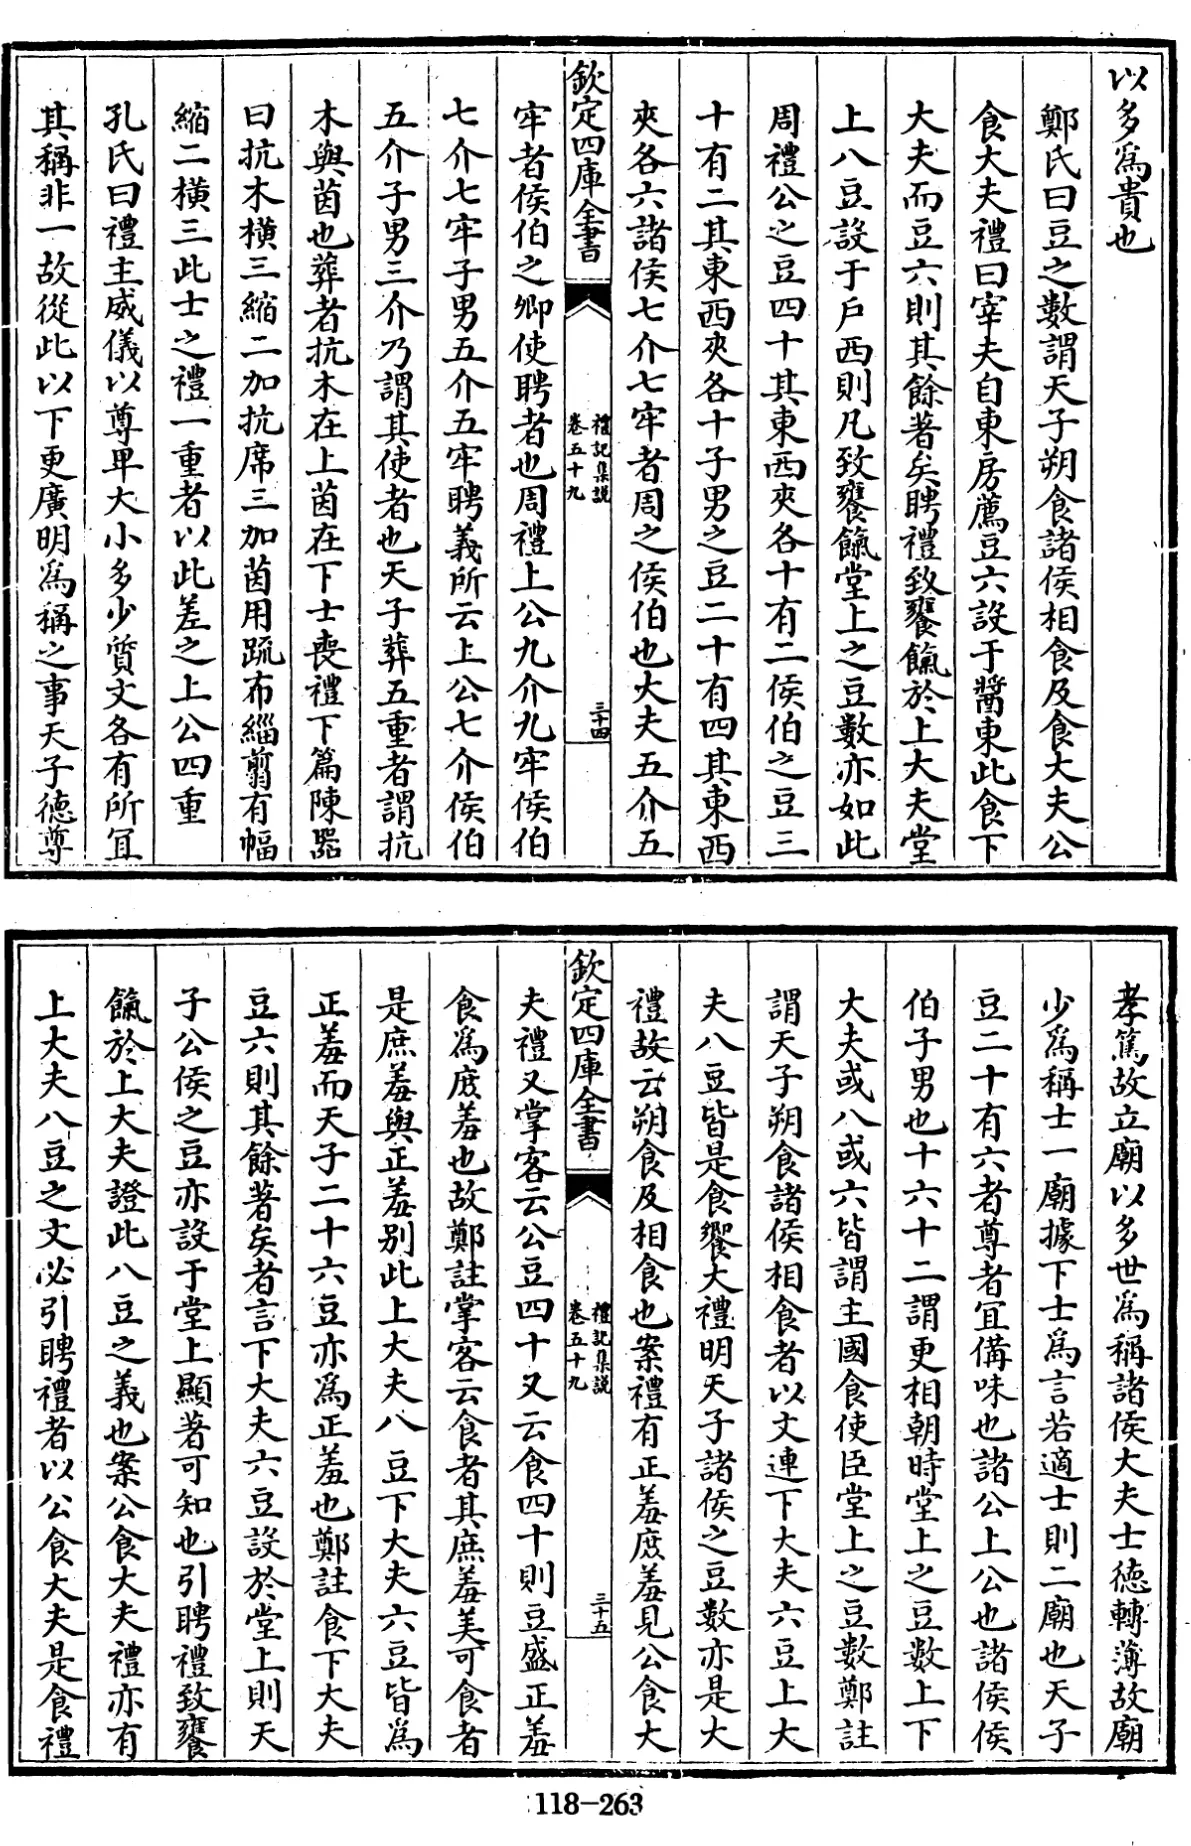 以多爲貴也
鄭氏曰豆之數謂天子朔食諸侯相食及食大夫公
食大夫禮曰宰夫自東房薦豆六設于醬東此食下
大夫而豆六則其餘著矣聘禮致饔餼於上大夫堂
上八豆設于戶西則凡致饔餼堂上之豆數亦如此
周禮公之豆四十其東西夾各十有二侯伯之豆三
十有二其東西夾各十子男之豆二十有四其東西
夾各六諸侯七介七牢者周之侯伯也大夫五介五
欽定四庫全書
禮記集說
卷五十九
三十四
牢者侯伯之卿使聘者也周禮上公九介九牢侯伯
七介七牢子男五介五牢聘義所云上公七介侯伯
五介子男三介乃謂其使者也天子葬五重者謂抗
木與茵也葬者抗木在上茵在下士喪禮下篇陳器
曰抗木橫三縮二加抗席三加茵用疏布緇翦有幅
縮二橫三此士之禮一重者以此差之上公四重
孔氏曰禮主威儀以尊卑大小多少質文各有所宜
其稱非一故從此以下更廣明爲稱之事天子德尊
孝篤故立廟以多世爲稱諸侯大夫士德轉薄故廟
少爲稱士一廟據下士爲言若適士則二廟也天子
豆二十有六者尊者宜備味也諸公上公也諸侯侯
伯子男也十六十二謂更相朝時堂上之豆數上下
大夫或八或六皆謂主國食使臣堂上之豆數鄭註
謂天子朔食諸侯相食者以文連下大夫六豆上大
夫八豆皆是食饗大禮明天子諸侯之豆數亦是大
禮故云朔食及相食也案禮有正羞庶羞見公食大
欽定四庫全書
禮記集說
卷五十九
三十五
夫禮又掌客云公豆四十又云食四十則豆盛正羞
食爲庶羞也故鄭註掌客云食者其庶羞美可食者
是庶羞與正羞別此上大夫八豆下大夫六豆皆爲
正羞而天子二十六豆亦爲正羞也鄭註食下大夫
豆六則其餘著矣者言下大夫六豆設於堂上則天
子公侯之豆亦設于堂上顯著可知也引聘禮致饔
餼於上大夫證此八豆之義也案公食大夫禮亦有
上大夫八豆之文必引聘禮者以公食大夫是食禮
118-263